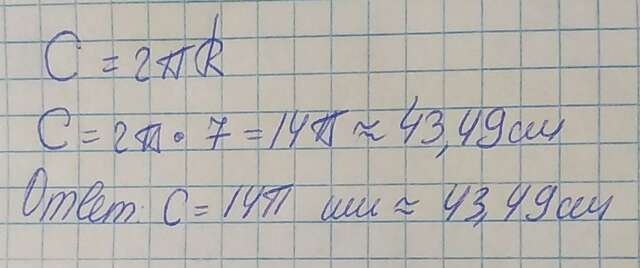 C = 2πR
C = 2π · 7 = 14π ≈ 43,49см
Ответ: C = 14π или ≈ 43,49см